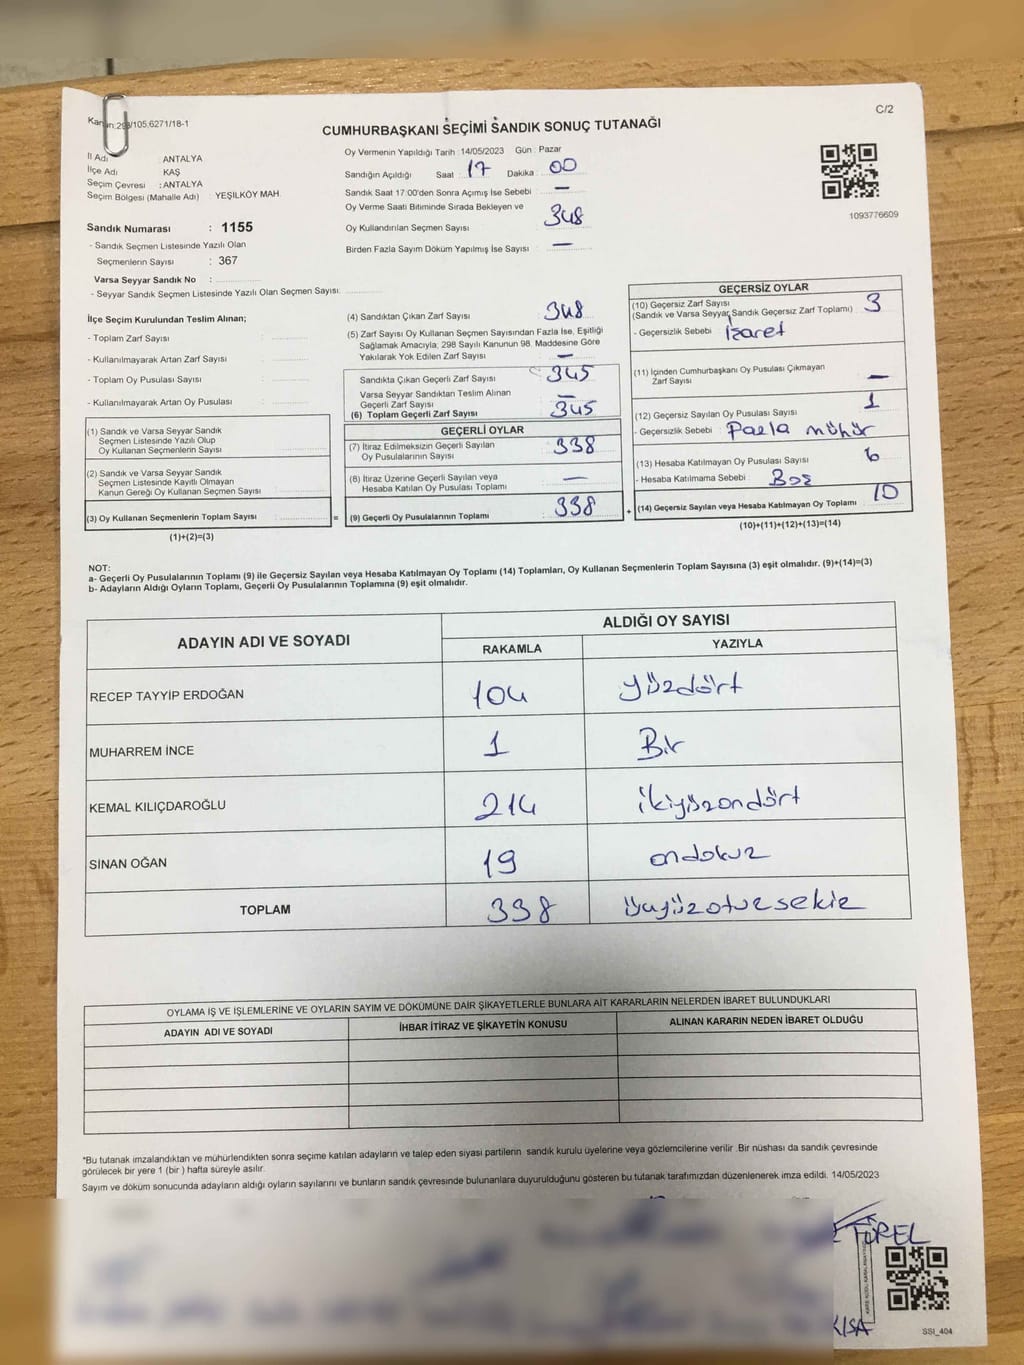 Kanun:298/105,6271/18-1
C/2
CUMHURBAŞKANI SEÇİMİ SANDIK SONUÇ TUTANAĞI
İl Adı : ANTALYA
İlçe Adı : KAŞ
Seçim Çevresi : ANTALYA
Seçim Bölgesi (Mahalle Adı) : YEŞİLKÖY MAH.
Sandık Numarası : 1155
- Sandık Seçmen Listesinde Yazılı Olan
Seçmenlerin Sayısı : 367
Varsa Seyyar Sandık No :
- Seyyar Sandık Seçmen Listesinde Yazılı Olan Seçmen Sayısı:
Oy Vermenin Yapıldığı Tarih :14/05/2023 Gün : Pazar
Sandığın Açıldığı Saat : 17 Dakika : 00
Sandık Saat 17:00'den Sonra Açımış İse Sebebi : —
Oy Verme Saati Bitiminde Sırada Bekleyen ve
Oy Kullandırılan Seçmen Sayısı : 348
Birden Fazla Sayım Döküm Yapılmış İse Sayısı : —
1093776609
İlçe Seçim Kurulundan Teslim Alınan;
- Toplam Zarf Sayısı :
- Kullanılmayarak Artan Zarf Sayısı :
- Toplam Oy Pusulası Sayısı :
- Kullanılmayarak Artan Oy Pusulası :
(1) Sandık ve Varsa Seyyar Sandık
Seçmen Listesinde Yazılı Olup
Oy Kullanan Seçmenlerin Sayısı :
(2) Sandık ve Varsa Seyyar Sandık
Seçmen Listesinde Kayıtlı Olmayan
Kanun Gereği Oy Kullanan Seçmen Sayısı :
(3) Oy Kullanan Seçmenlerin Toplam Sayısı :
(1)+(2)=(3)
(4) Sandıktan Çıkan Zarf Sayısı : 348
(5) Zarf Sayısı Oy Kullanan Seçmen Sayısından Fazla İse, Eşitliği
Sağlamak Amacıyla; 298 Sayılı Kanunun 98. Maddesine Göre
Yakılarak Yok Edilen Zarf Sayısı : —
Sandıkta Çıkan Geçerli Zarf Sayısı : 345
Varsa Seyyar Sandıktan Teslim Alınan
Geçerli Zarf Sayısı : —
(6) Toplam Geçerli Zarf Sayısı : 345
GEÇERLİ OYLAR
(7) İtiraz Edilmeksizin Geçerli Sayılan
Oy Pusulalarının Sayısı : 338
(8) İtiraz Üzerine Geçerli Sayılan veya
Hesaba Katılan Oy Pusulası Toplamı : —
= (9) Geçerli Oy Pusulalarının Toplamı : 338
GEÇERSİZ OYLAR
(10) Geçersiz Zarf Sayısı
(Sandık ve Varsa Seyyar Sandık Geçersiz Zarf Toplamı) : 3
- Geçersizlik Sebebi : İşaret
(11) İçinden Cumhurbaşkanı Oy Pusulası Çıkmayan
Zarf Sayısı : —
(12) Geçersiz Sayılan Oy Pusulası Sayısı : 1
- Geçersizlik Sebebi : Fazla mühür
(13) Hesaba Katılmayan Oy Pusulası Sayısı : 6
- Hesaba Katılmama Sebebi : Boş
+ (14) Geçersiz Sayılan veya Hesaba Katılmayan Oy Toplamı : 10
(10)+(11)+(12)+(13)=(14)
NOT:
a- Geçerli Oy Pusulalarının Toplamı (9) ile Geçersiz Sayılan veya Hesaba Katılmayan Oy Toplamı (14) Toplamları, Oy Kullanan Seçmenlerin Toplam Sayısına (3) eşit olmalıdır. (9)+(14)=(3)
b- Adayların Aldığı Oyların Toplamı, Geçerli Oy Pusulalarının Toplamına (9) eşit olmalıdır.
ADAYIN ADI VE SOYADI
ALDIĞI OY SAYISI
RAKAMLA YAZIYLA
RECEP TAYYİP ERDOĞAN 104 yüzdört
MUHARREM İNCE 1 Bir
KEMAL KILIÇDAROĞLU 214 ikiyüzondört
SİNAN OĞAN 19 ondokuz
TOPLAM 338 üçyüzotuzsekiz
OYLAMA İŞ VE İŞLEMLERİNE VE OYLARIN SAYIM VE DÖKÜMÜNE DAİR ŞİKAYETLERLE BUNLARA AİT KARARLARIN NELERDEN İBARET BULUNDUKLARI
ADAYIN ADI VE SOYADI İHBAR İTİRAZ VE ŞİKAYETİN KONUSU ALINAN KARARIN NEDEN İBARET OLDUĞU
*Bu tutanak imzalandıktan ve mühürlendikten sonra seçime katılan adayların ve talep eden siyasi partilerin sandık kurulu üyelerine veya gözlemcilerine verilir. Bir nüshası da sandık çevresinde
görülecek bir yere 1 (bir ) hafta süreyle asılır.
Sayım ve döküm sonucunda adayların aldığı oyların sayılarını ve bunların sandık çevresinde bulunanlara duyurulduğunu gösteren bu tutanak tarafımızdan düzenlenerek imza edildi. 14/05/2023
TÜREL
KISA
SSI_404